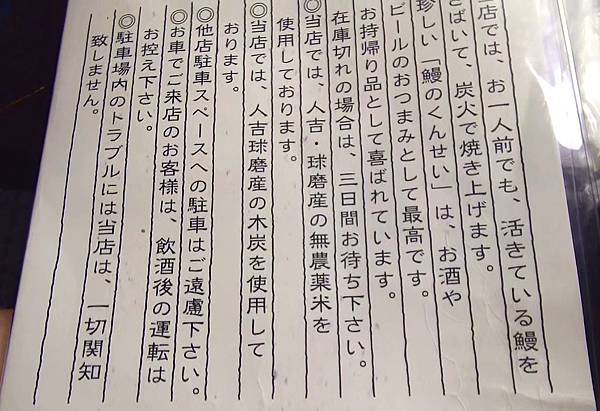 当店では、お一人前でも、活きている鰻を
さばいて、炭火で焼き上げます。
珍しい「鰻のくんせい」は、お酒や
ビールのおつまみとして最高です。
お持帰り品として喜ばれています。
在庫切れの場合は、三日間お待ち下さい。
◎当店では、人吉・球磨産の無農薬米を
使用しております。
◎当店では、人吉球磨産の木炭を使用して
おります。
◎他店駐車スペースへの駐車はご遠慮下さい。
◎お車でご来店のお客様は、飲酒後の運転は
お控え下さい。
◎駐車場内のトラブルには当店は、一切関知
致しません。